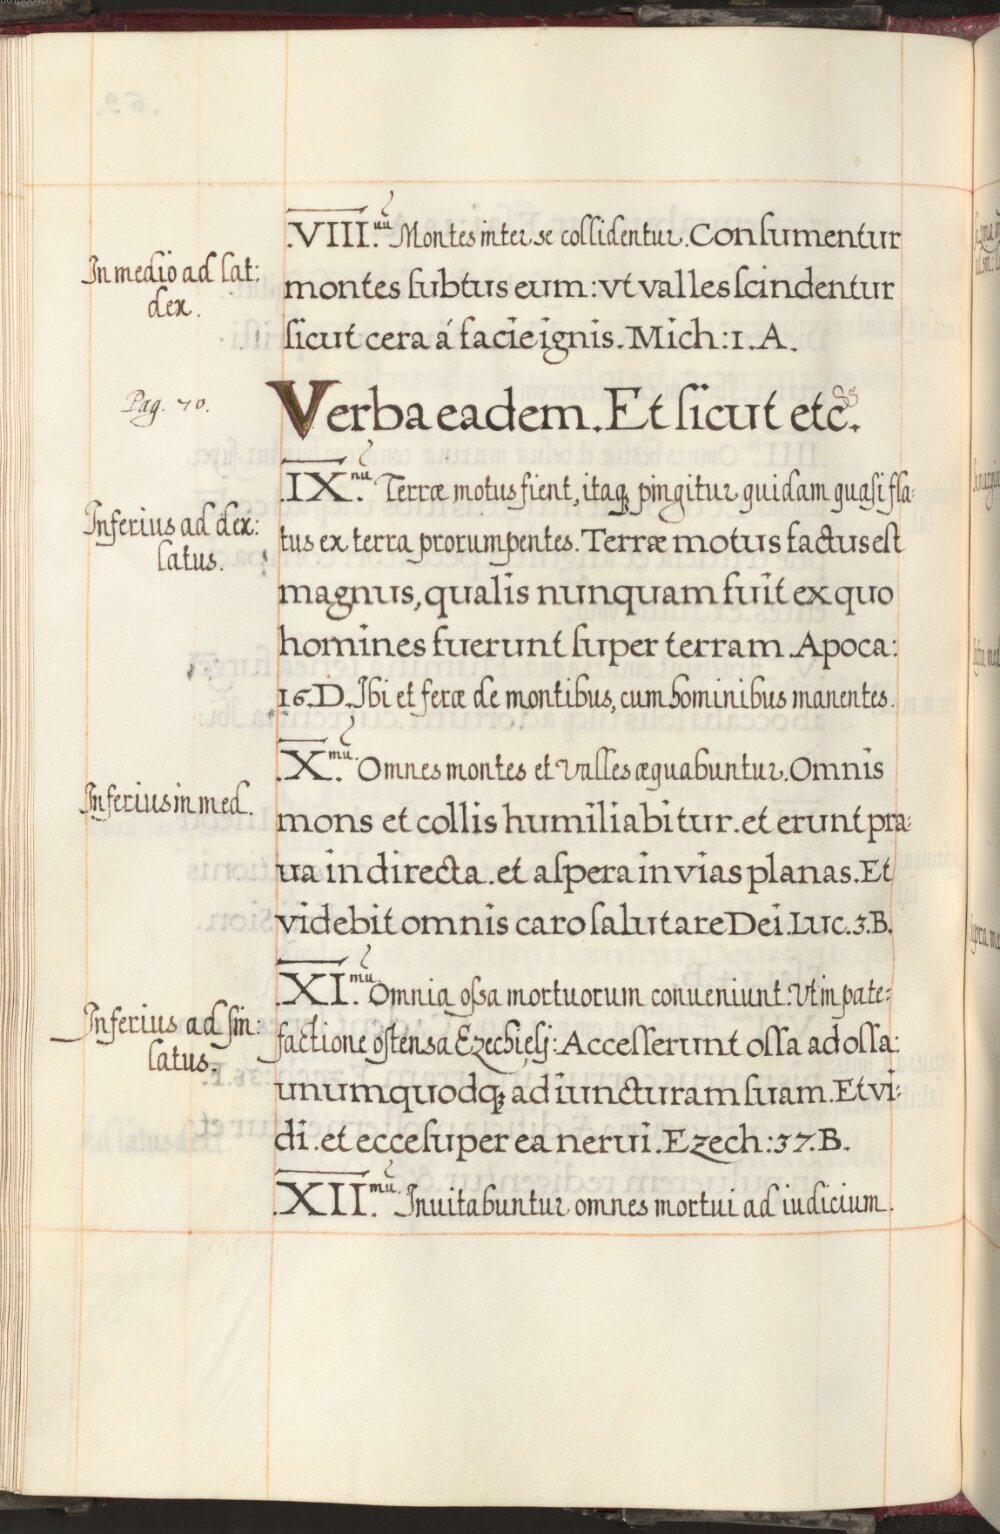 .VIII.uũ Montes inter se collidentur. Conſumentur
In medio ad lat:
dex.
montes ſubtus eum: vt valles ſcindentur
ſicut cera á facie ignis. Mich: 1. A.
Pag. 70.
Verba eadem. Et ſicut etc̃.
.IX.nũ Terræ motus fient, itaq; pingitur quidam quaſi fla-
Inferius ad dex:
latus.
tus ex terra prorumpentes. Terræ motus factus eſt
magnus, qualis nunquam fuit ex quo
homines fuerunt ſuper terram. Apoca:
16. D. Ibi et feræ de montibus, cum hominibus manentes.
.X.mũ Omnes montes et valles æquabuntur. Omnis
Inferius in med.
mons et collis humiliabitur. et erunt pra-
ua in directa. et aſpera in vias planas. Et
videbit omnis caro ſalutare Dei. Luc. 3. B.
.XI.mũ Omnia oſsa mortuorum conueniunt: Vt in pate-
Inferius ad ſin:
latus.
factione oſtensa Ezechielj: Acceſſerunt oſſa ad oſſa:
unumquodq; ad iuncturam ſuam. Et vi-
di. et ecce ſuper ea nerui. Ezech: 37. B.
.XII.mũ Inuitabuntur omnes mortui ad iudicium.